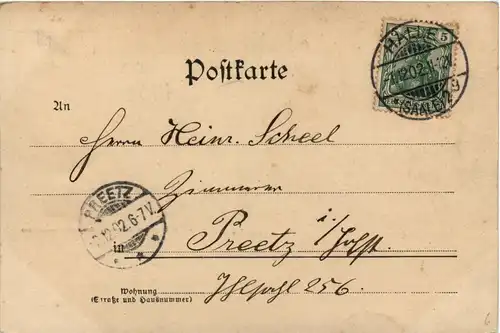 Postkarte
HALLE
(SAALE)
An
Herrn Heinr. Scheel
Zimmerer
PREETZ
12.02.6-7V.
in Preetz i/Holst.
Wohnung
(Straße und Hausnummer)
256.